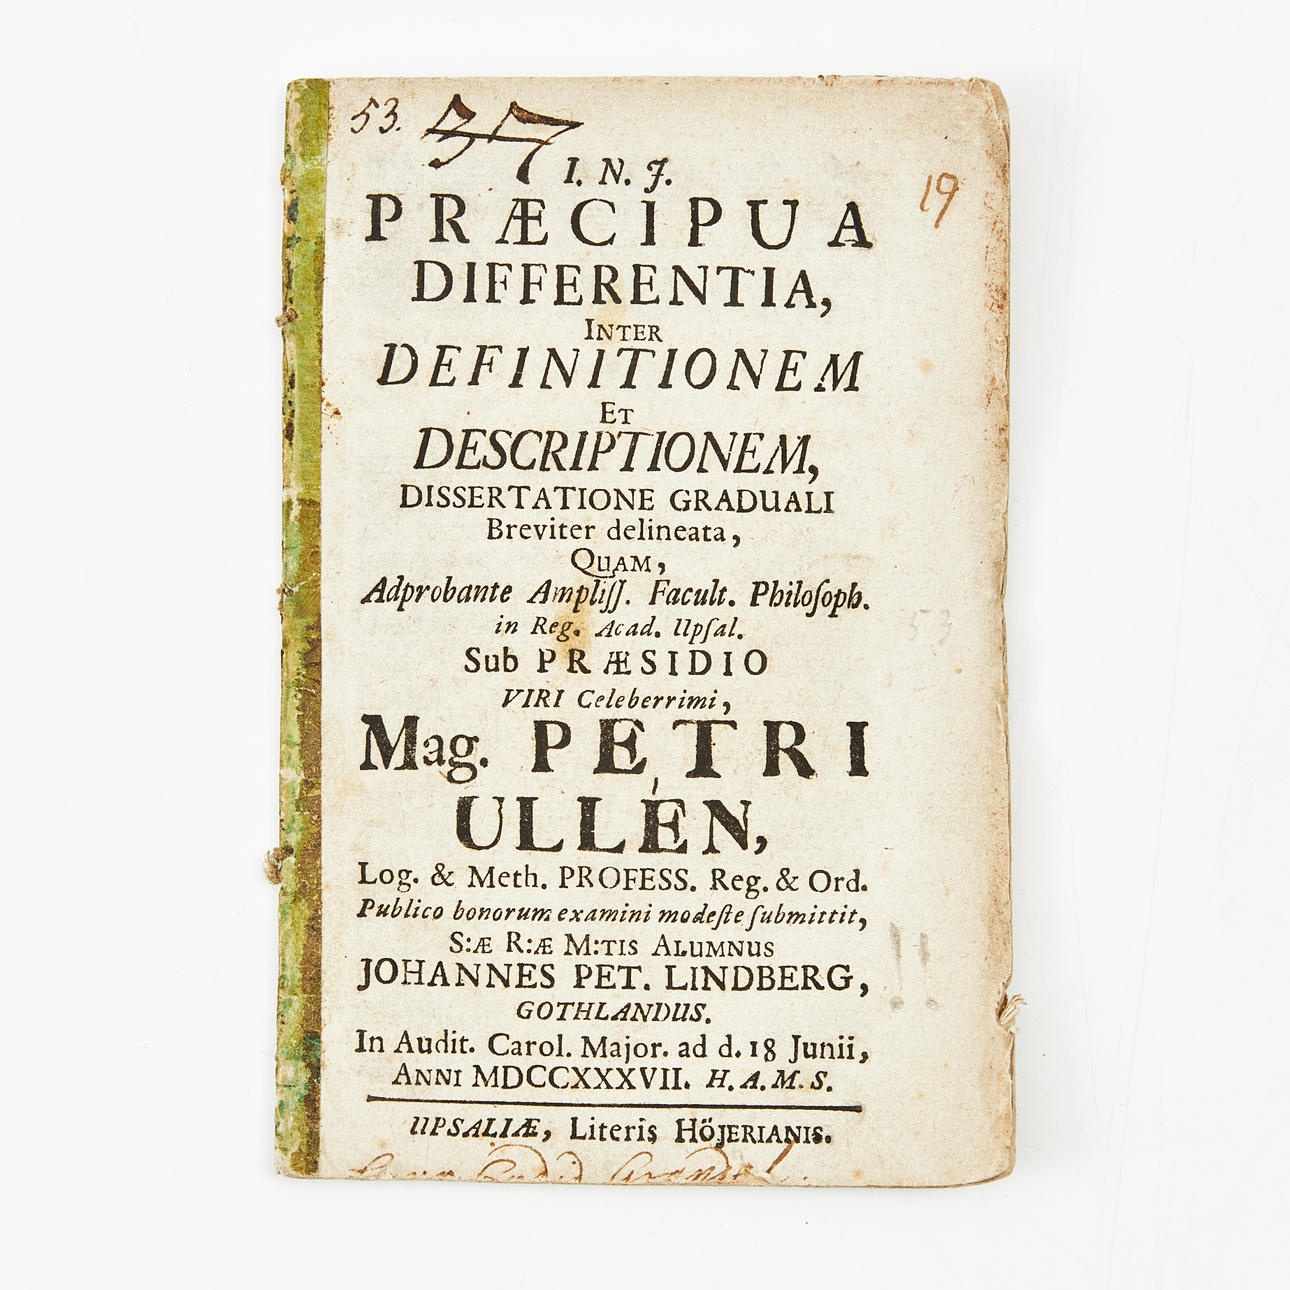 53. 37
I. N. J.
19
PRÆCIPUA
DIFFERENTIA,
INTER
DEFINITIONEM
ET
DESCRIPTIONEM,
DISSERTATIONE GRADUALI
Breviter delineata,
QUAM,
Adprobante Ampliſſ. Facult. Philoſoph.
in Reg. Acad. Upſal.
Sub PRÆSIDIO
VIRI Celeberrimi,
Mag. PETRI
ULLÉN,
Log. & Meth. PROFESS. Reg. & Ord.
Publico bonorum examini modeſte ſubmittit,
S:Æ R:Æ M:TIS ALUMNUS
JOHANNES PET. LINDBERG,
GOTHLANDUS.
In Audit. Carol. Major. ad d. 18 Junii,
ANNI MDCCXXXVII. H. A. M. S.
UPSALIÆ, Literis HÖJERIANIS.